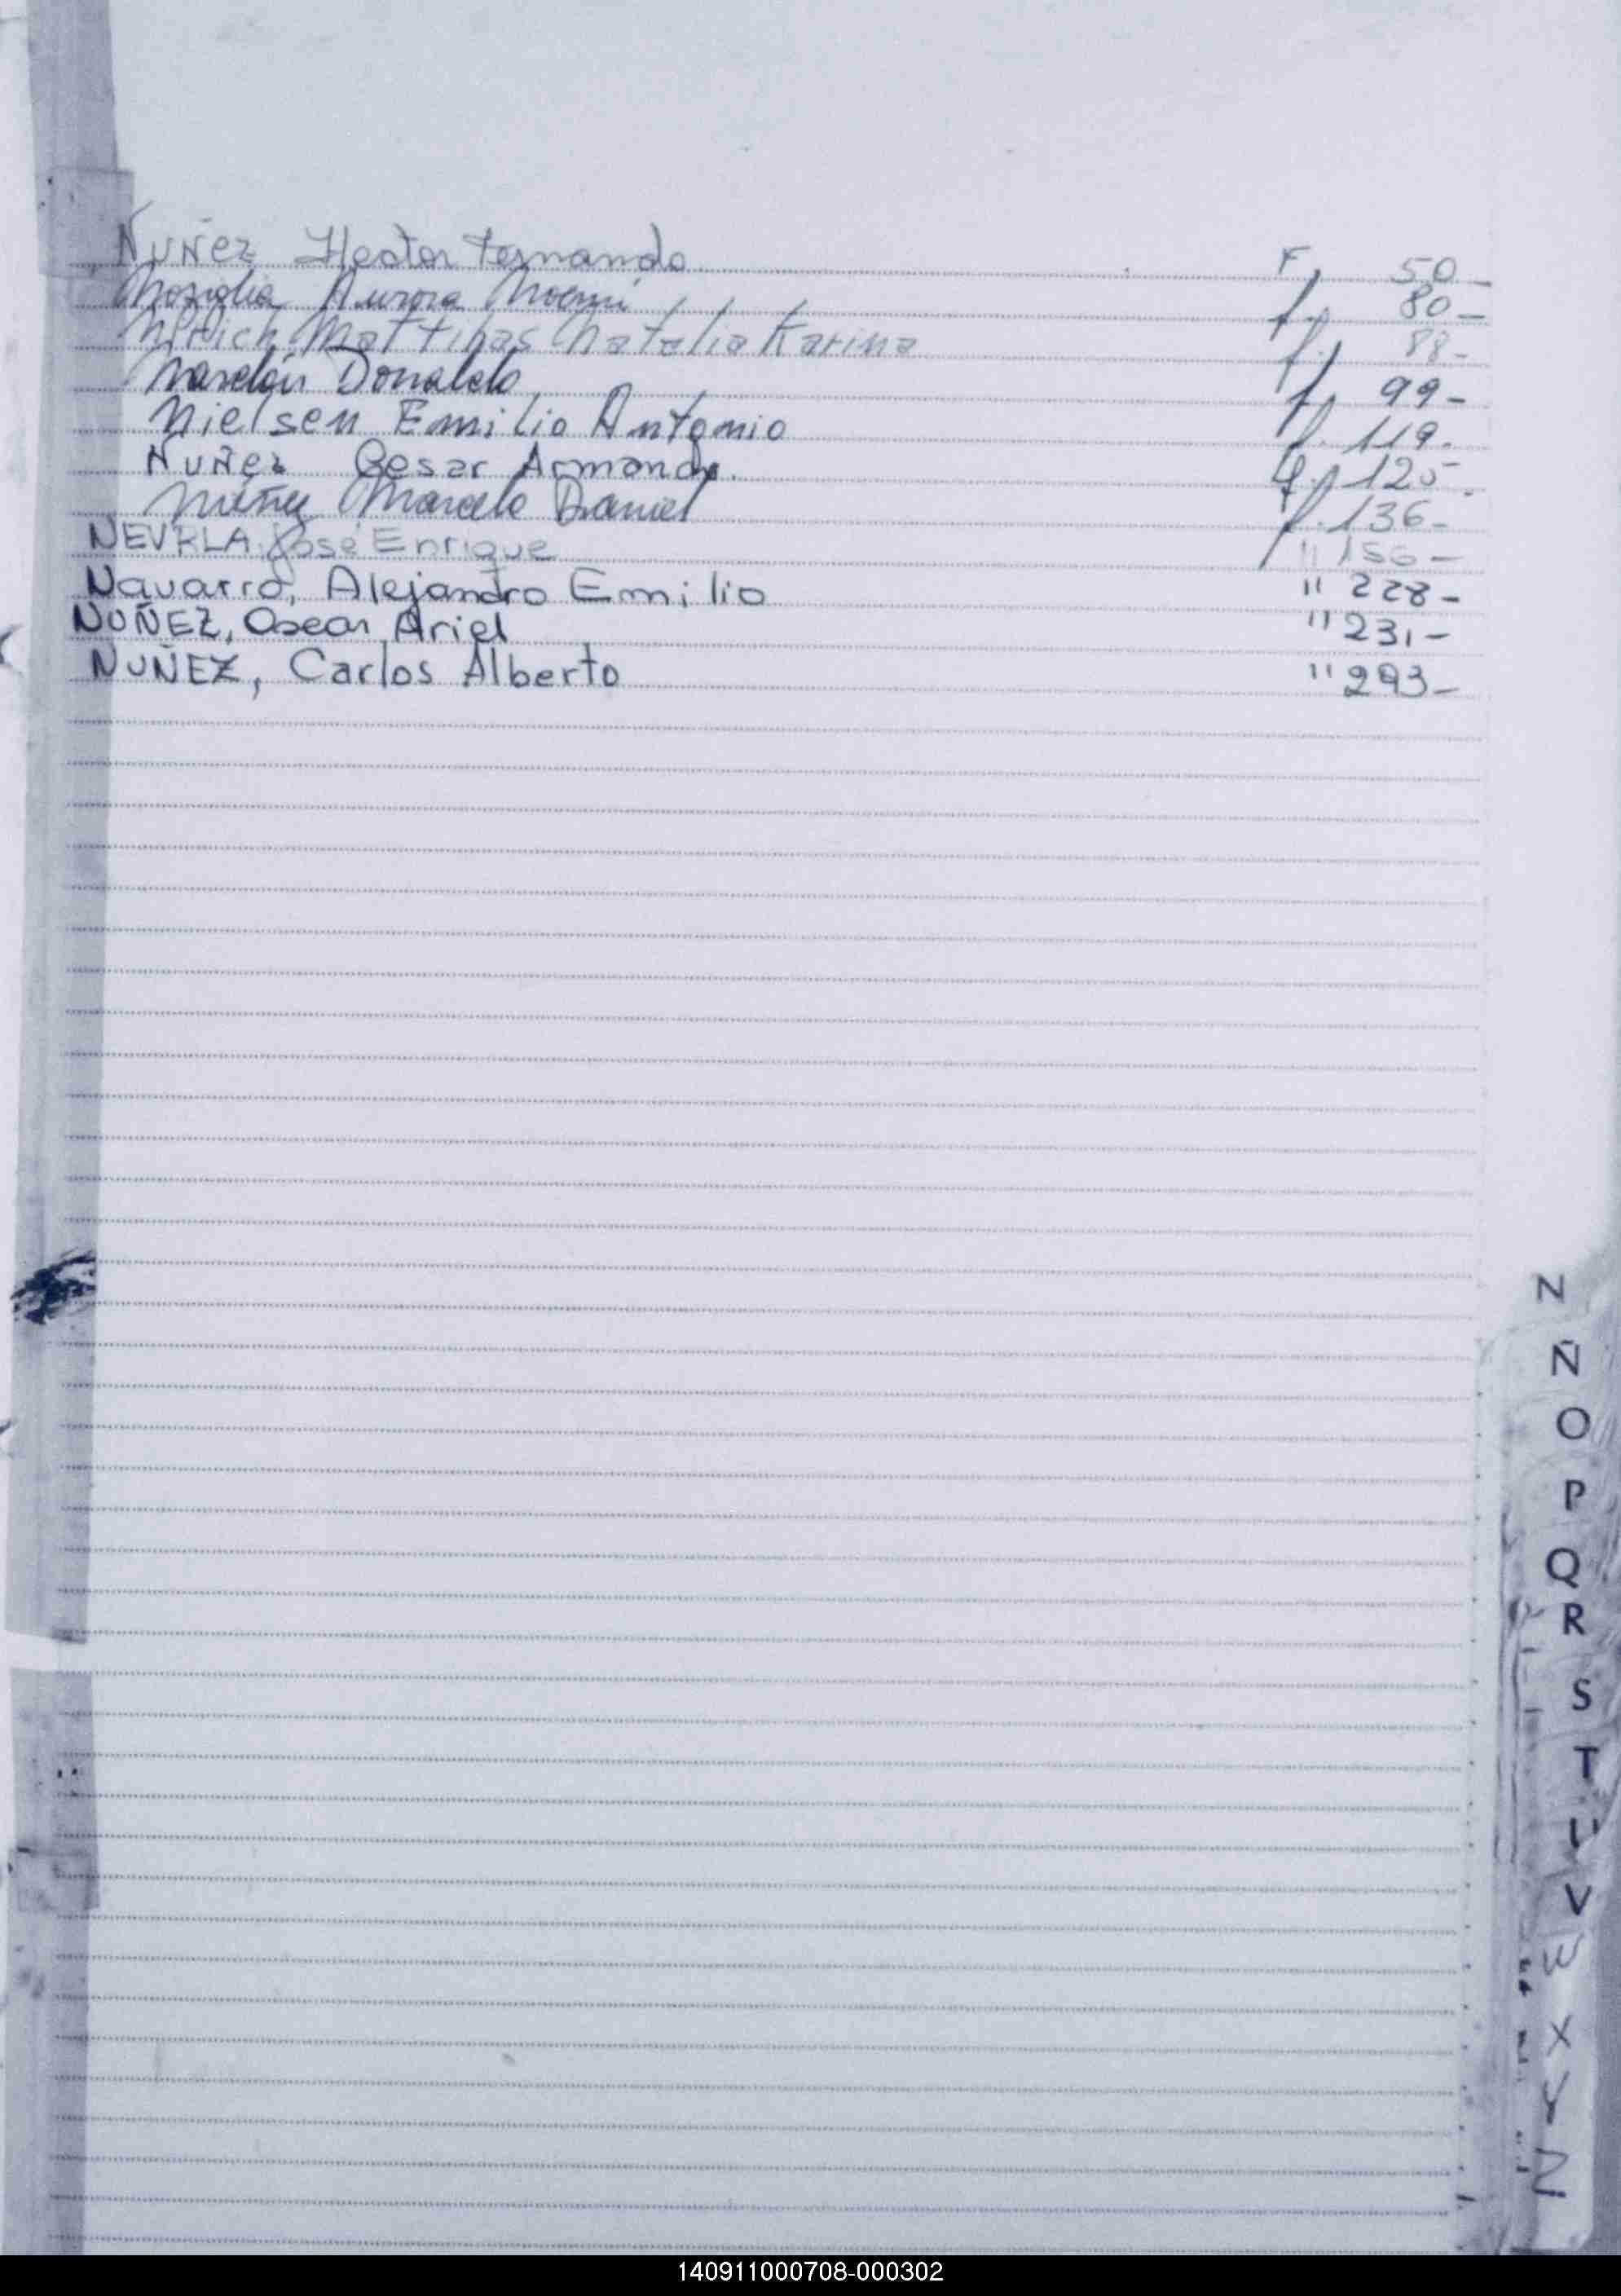 Nuñez Hector Fernando F, 50-
Aurora Noemí f. 80-
Natalia Karina f. 88-
Donaldo f, 99-
Nielsen Emilio Antonio f. 119-
Nuñez Cesar Armando. f. 125-
Núñez Marcelo Daniel f. 136-
NEVRLA José Enrique " 156-
Navarro, Alejandro Emilio " 228-
NUÑEZ, Oscar Ariel " 231-
NUÑEZ, Carlos Alberto " 293-
N
Ñ
O
P
Q
R
S
T
U
V
W
X
Y
Z
140911000708-000302